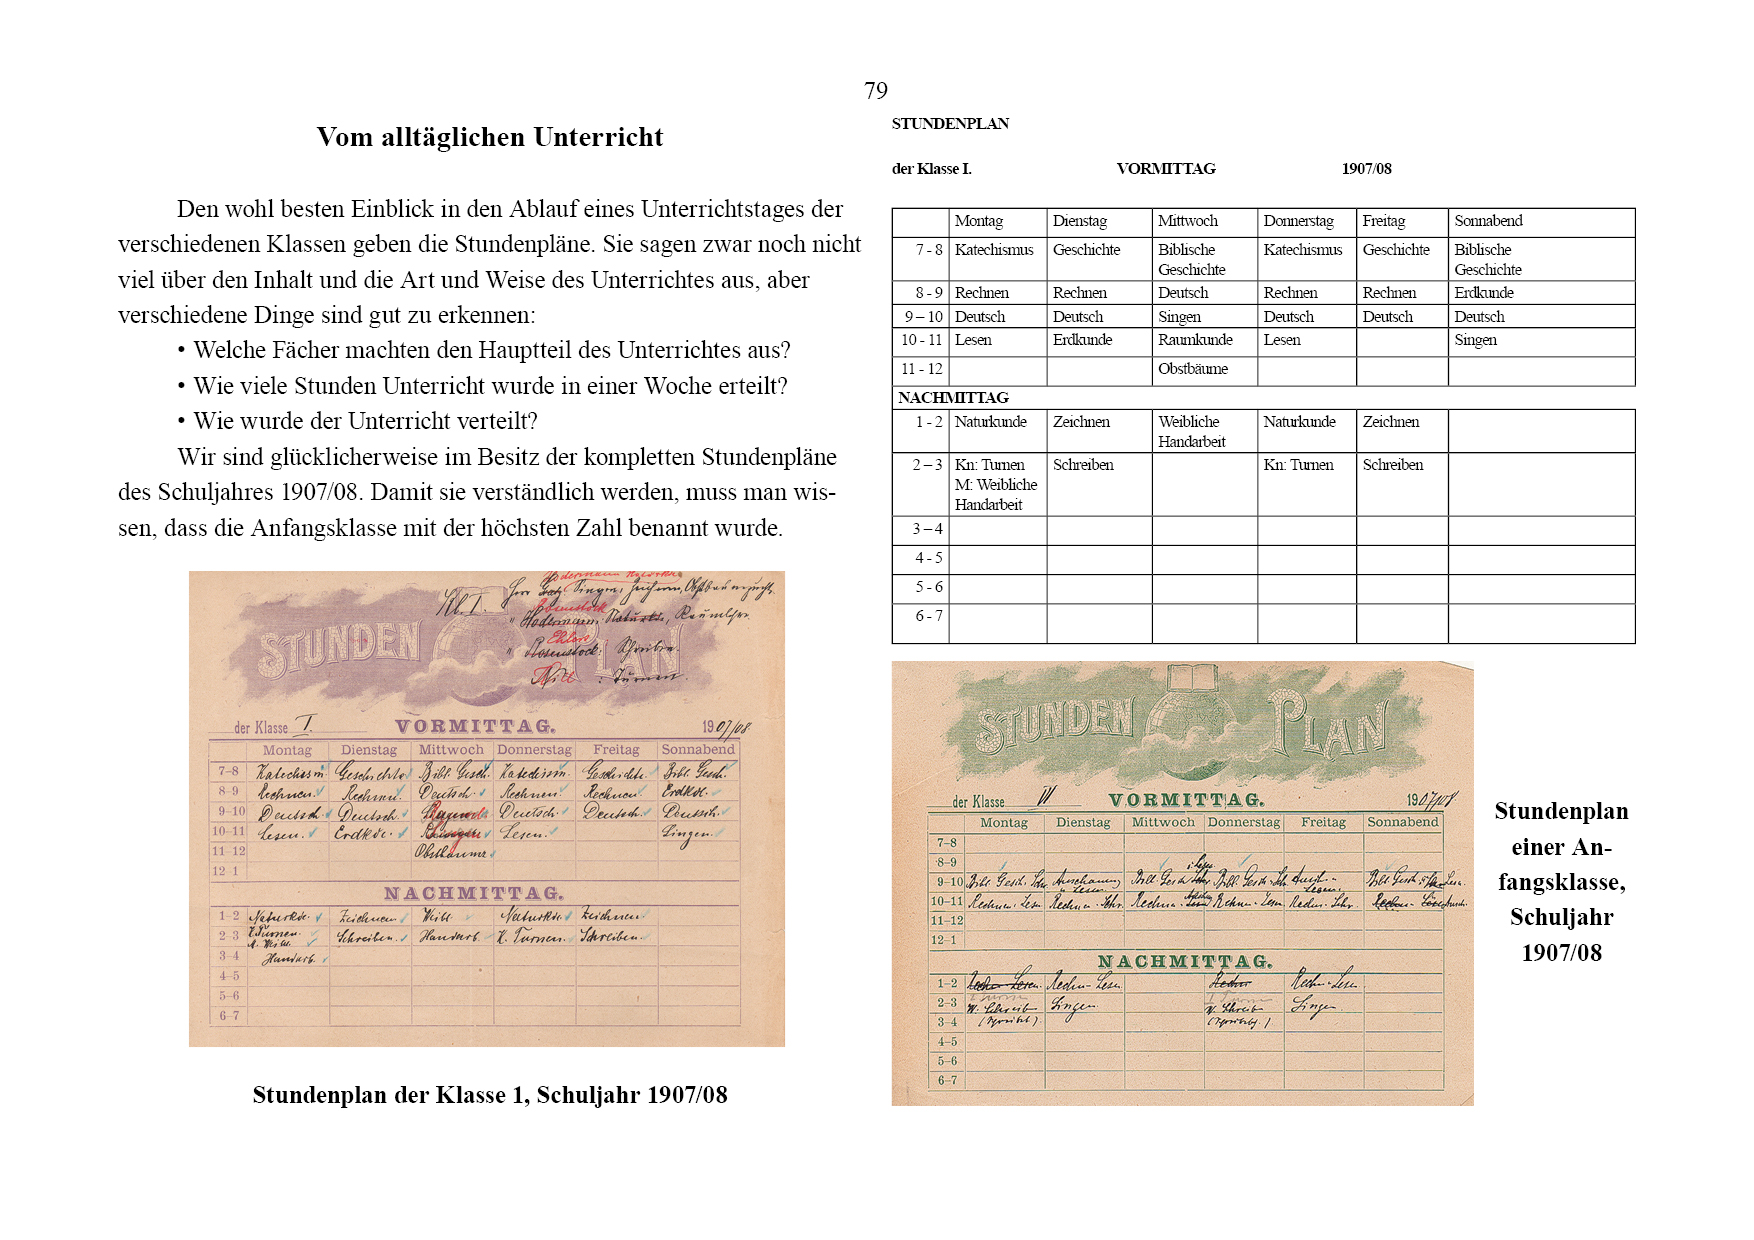 79
Vom alltäglichen Unterricht
Den wohl besten Einblick in den Ablauf eines Unterrichtstages der
verschiedenen Klassen geben die Stundenpläne. Sie sagen zwar noch nicht
viel über den Inhalt und die Art und Weise des Unterrichtes aus, aber
verschiedene Dinge sind gut zu erkennen:
• Welche Fächer machten den Hauptteil des Unterrichtes aus?
• Wie viele Stunden Unterricht wurde in einer Woche erteilt?
• Wie wurde der Unterricht verteilt?
Wir sind glücklicherweise im Besitz der kompletten Stundenpläne
des Schuljahres 1907/08. Damit sie verständlich werden, muss man wis-
sen, dass die Anfangsklasse mit der höchsten Zahl benannt wurde.
Kl. I. Herr Singen,
Hodermann
Rosenstock
Ehlers
Rosenstock: Schreiben.
Will : Turnen.
STUNDEN PLAN
der Klasse I. VORMITTAG. 1907/08
Montag Dienstag Mittwoch Donnerstag Freitag Sonnabend
7-8 Katechism. Geschichte Bibl. Gesch. Katechism. Geschichte. Bibl. Gesch.
8-9 Rechnen. Rechnen. Deutsch. Rechnen. Rechnen. Erdkde.
9-10 Deutsch. Deutsch. Deutsch. Deutsch. Deutsch.
10-11 Lesen. Erdkde. Lesen. Singen.
11-12 Obstbäume
12-1
NACHMITTAG.
1-2 Naturkde. Zeichnen. Weibl. Naturkde. Zeichnen.
2-3 K. Turnen. Schreiben. Handarb. K. Turnen. Schreiben.
M. Weibl.
3-4 Handarb.
4-5
5-6
6-7
Stundenplan der Klasse 1, Schuljahr 1907/08
STUNDENPLAN
der Klasse I. VORMITTAG 1907/08
Montag Dienstag Mittwoch Donnerstag Freitag Sonnabend
7 - 8 Katechismus Geschichte Biblische Katechismus Geschichte Biblische
Geschichte Geschichte
8 - 9 Rechnen Rechnen Deutsch Rechnen Rechnen Erdkunde
9 – 10 Deutsch Deutsch Singen Deutsch Deutsch Deutsch
10 - 11 Lesen Erdkunde Raumkunde Lesen Singen
11 - 12 Obstbäume
NACHMITTAG
1 - 2 Naturkunde Zeichnen Weibliche Naturkunde Zeichnen
Handarbeit
2 – 3 Kn: Turnen Schreiben Kn: Turnen Schreiben
M: Weibliche
Handarbeit
3 – 4
4 - 5
5 - 6
6 - 7
STUNDEN PLAN
der Klasse VI VORMITTAG. 1907/08
Montag Dienstag Mittwoch Donnerstag Freitag Sonnabend
7-8
8-9
9-10 Bibl. Gesch. Anschauung Bibl. Gesch. Bibl. Gesch. Bibl. Gesch.
u Lesen
10-11 Rechnen. Lesen Rechnen. Rechnen. Rechn. Lesen. Rechn.
11-12
12-1
NACHMITTAG.
1-2 Rechn. Lesen. Rechn. Lesen Rechn. Rechn. Lesen.
2-3 W. Schreib Singen W. Schreib Singen
3-4
4-5
5-6
6-7
Stundenplan
einer An-
fangsklasse,
Schuljahr
1907/08